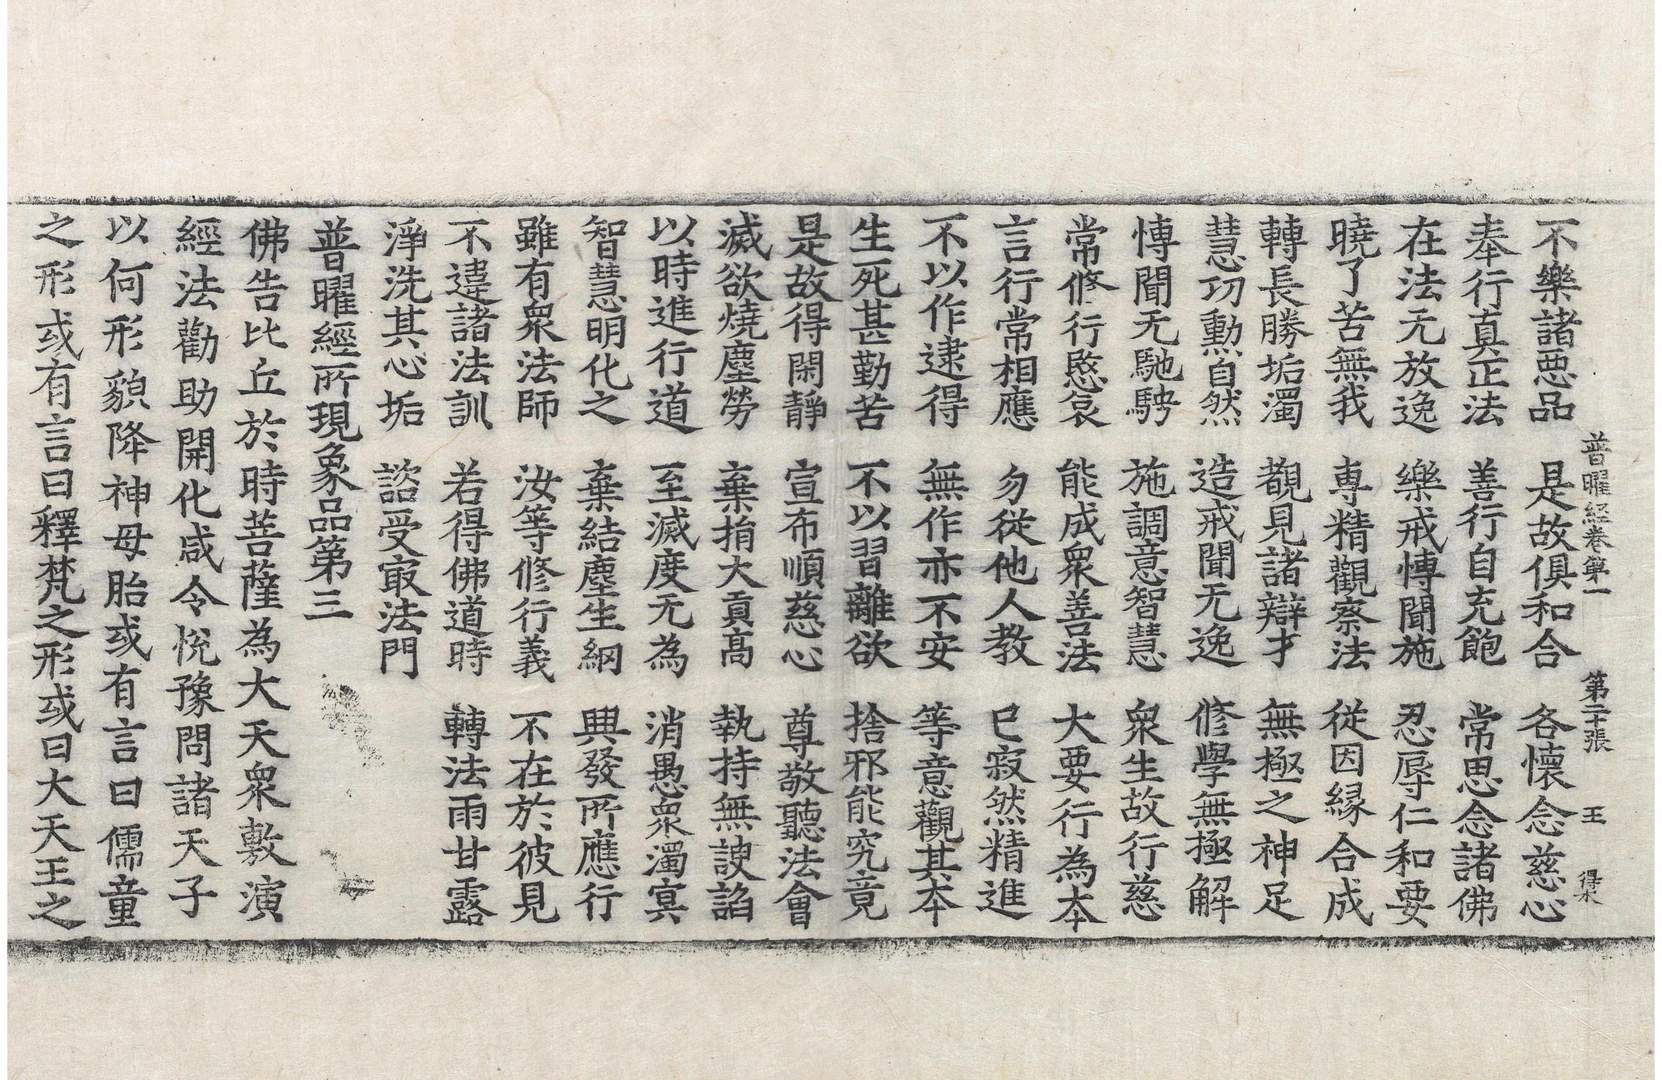 普曜経卷第一 第二十張 王 得木
不樂諸惡品 是故俱和合 各懷念慈心
奉行真正法 善行自充飽 常思念諸佛
在法无放逸 樂戒愽聞施 忍辱仁和要
曉了苦無我 専精觀察法 從因縁合成
轉長勝垢濁 覩見諸辯才 無極之神足
慧功勲自然 造戒聞无逸 修學無極解
愽聞无馳騁 施調意智慧 衆生故行慈
常修行愍哀 能成衆善法 大要行為夲
言行常相應 勿從他人教 已寂然精進
不以作逮得 無作亦不安 等意觀其夲
生死甚勤苦 不以習離欲 捨邪能究竟
是故得閑靜 宣布順慈心 尊敬聽法會
滅欲燒塵勞 棄捐大貢髙 執持無諛諂
以時進行道 至滅度无為 消愚衆濁冥
智慧明化之 棄結塵生網 興發所應行
雖有衆法師 汝等修行義 不在於彼見
不違諸法訓 若得佛道時 轉法雨甘露
淨洗其心垢 諮受㝡法門
普曜經所現象品第三
佛告比丘於時菩薩為大天衆敷演
經法勸助開化咸令悅豫問諸天子
以何形貌降神母胎或有言曰儒童
之形或有言曰釋梵之形或曰大天王之